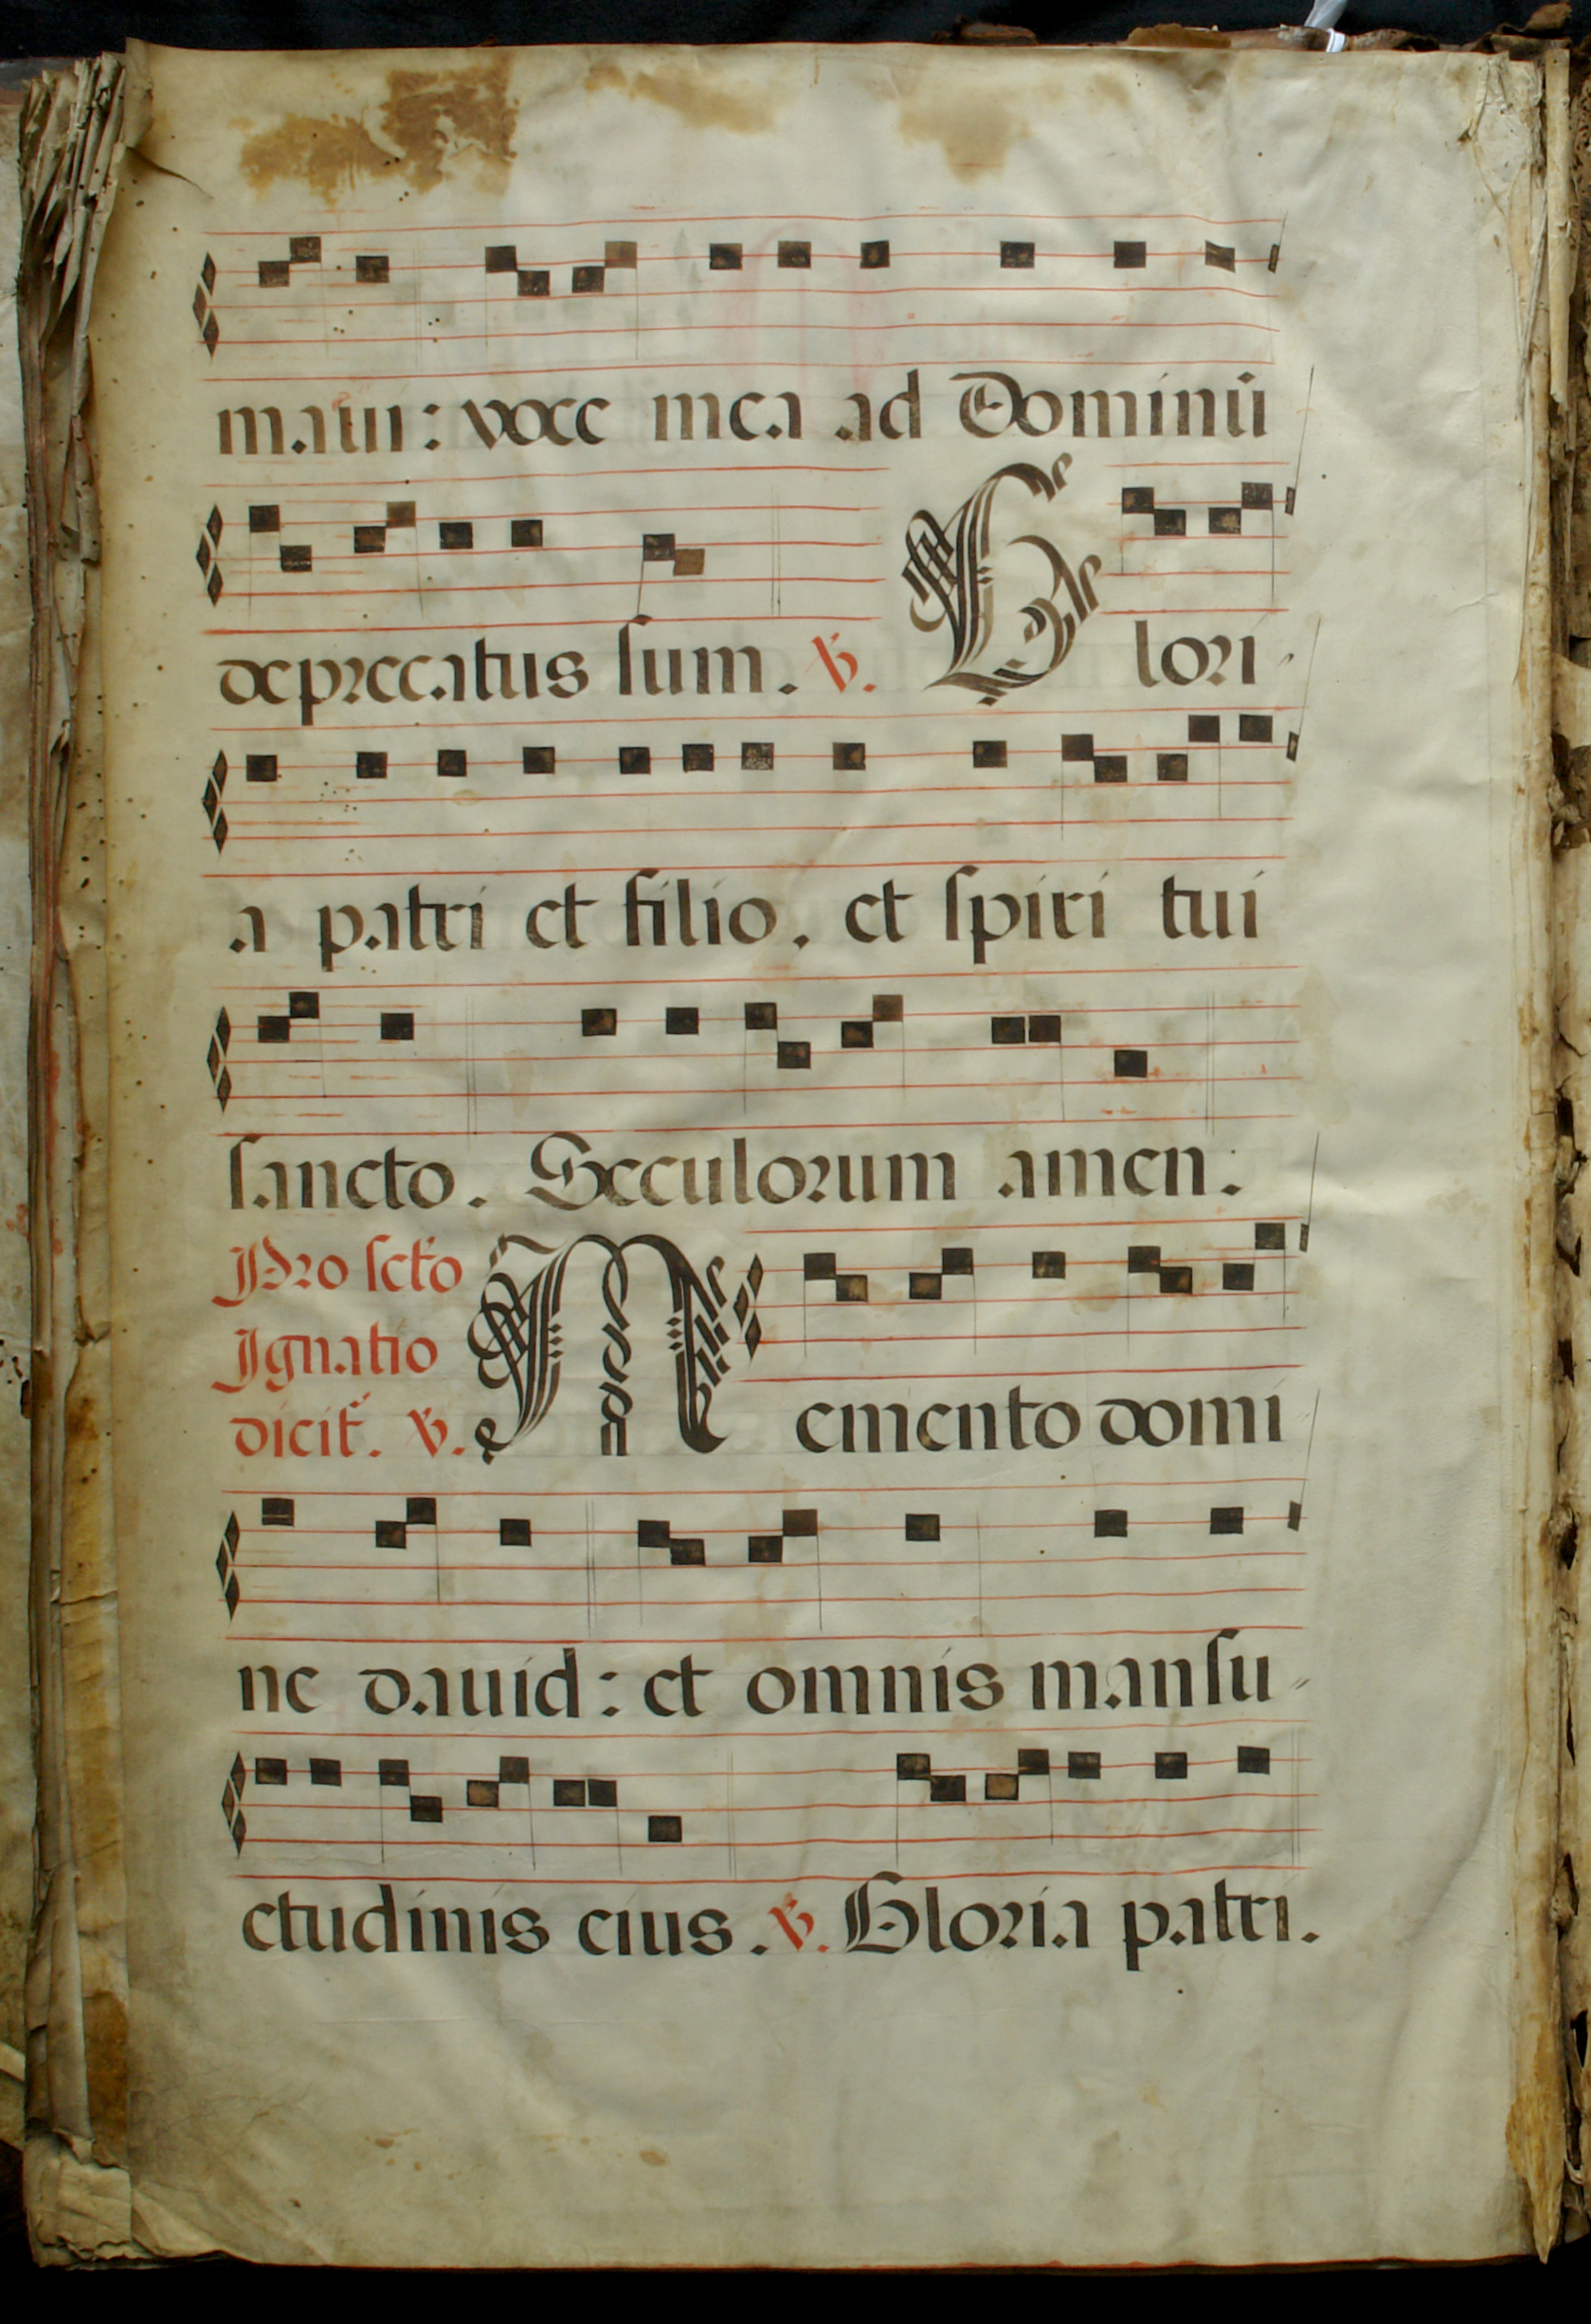 maui: voce mea ad Dominū
deprecatus sum. ℣. Glori-
a patri et filio. et spiri tui
sancto. Seculorum amen:
Pro scto
Ignatio
dicit̃. ℣.
Memento domi-
ne dauid: et omnis mansu-
etudinis eius. ℣. Gloria patri.